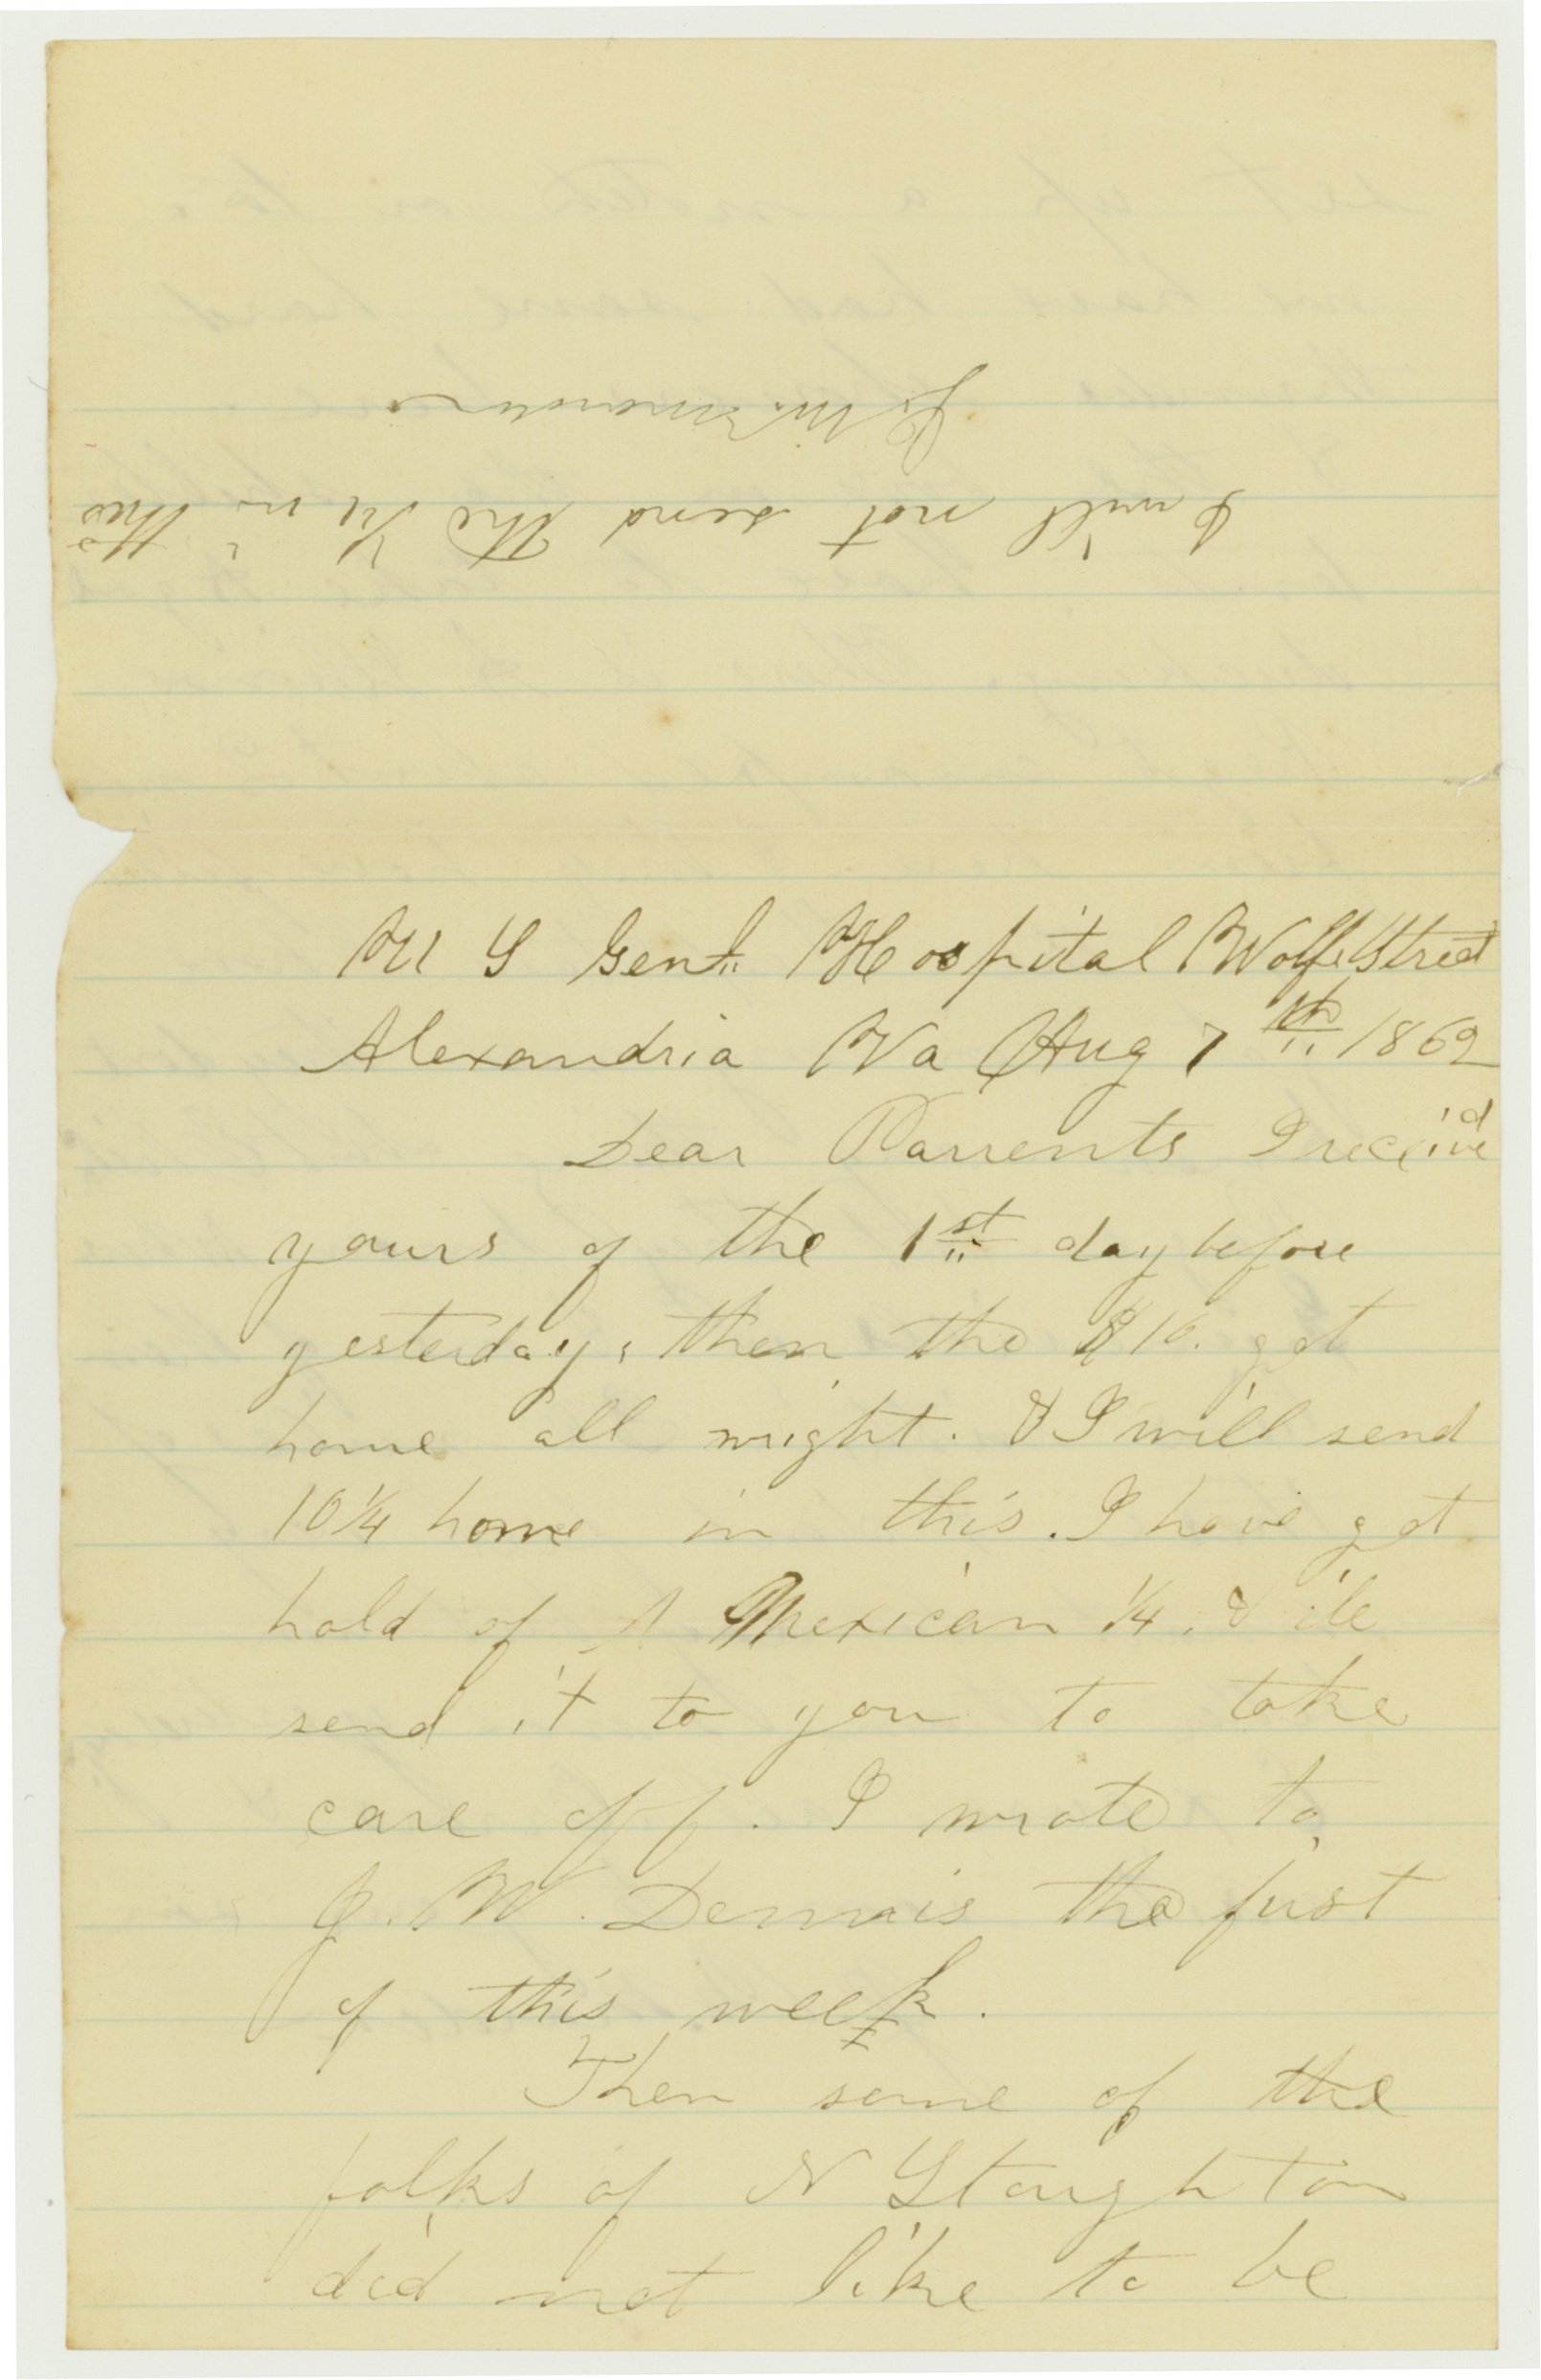 I will not send the ¼ in this
U S Genl. Hospital Wolfe Street
Alexandria Va Aug 7th 1862
Dear Parrents I receiv'd
yours of the 1st day before
yesterday, then the $10. got
home all wright. & I will send
10 ¼ home in this. I have got
hold of A Mexican ¼, & ile
send it to you to take
care off. I wrote to
J. W. Dennis the first
of this week.
Then some of the
folks of N Stoughton
did not like to be